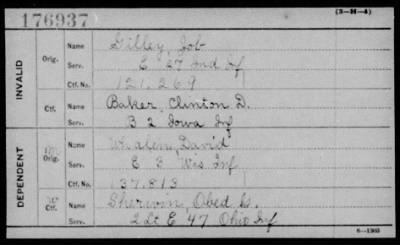 176937
(3-H-4)
INVALID
Orig.
Name Gilley, Job
Serv. E 47 Ind Inf
Ctf. No. 121,269
Ctf.
Name Baker, Clinton D.
Serv. B 2 Iowa Inf
DEPENDENT
Orig.
Name Whalen, David
Serv. E 3 Wis Inf
Ctf. No. 137,813
Ctf.
Name Sherwin, Obed
Serv. 2 Lt E 47 Ohio Inf